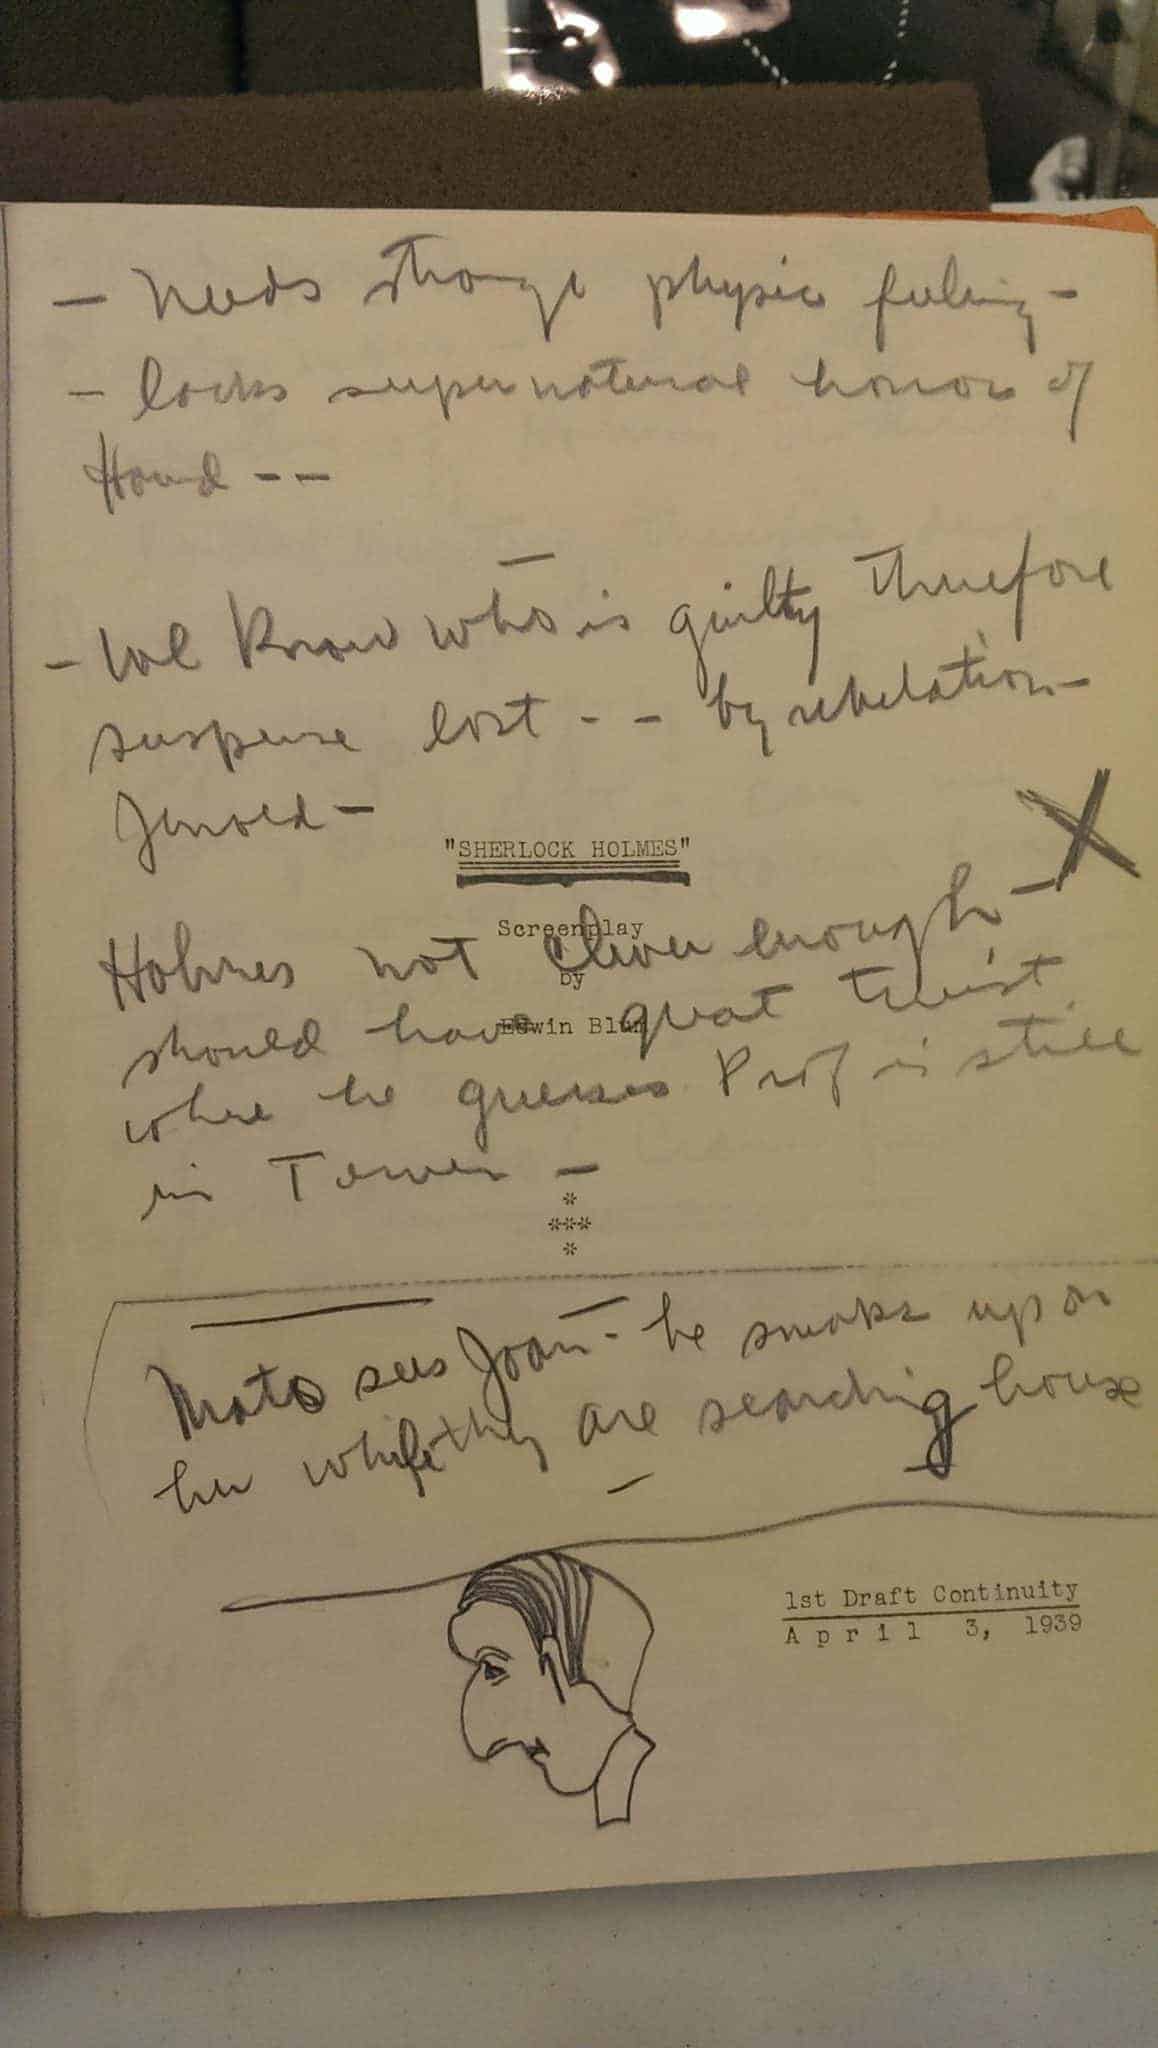 - Needs strange physic feeling -
- lacks supernatural horror of
Hound - -
- We Know who is guilty therefore
suspense lost - - by revelation
Jerrold -
"SHERLOCK HOLMES"
Screenplay
by
Edwin Blum
Holmes not clever enough -
should have great twist
where he guesses Prof is still
in Tower -
*
***
*
Mato sees Joan - he sneaks up on
her while they are searching house
1st Draft Continuity
April 3, 1939